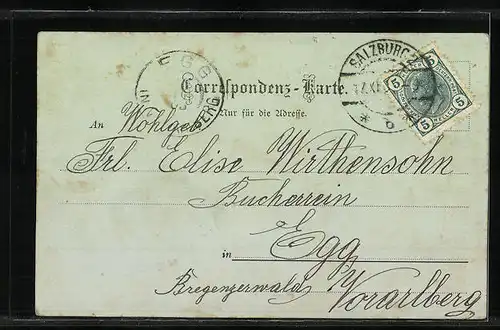 SALZBURG 2
EGG
Correspondenz-Karte.
Nur für die Adresse.
An Wohlgeb
Frl. Elise Wirthensohn
Bucherrein
in Egg
Bregenzerwald Vorarlberg
5 5 5 5